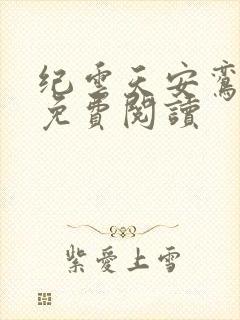 纪雲天安鸾
免費閱讀
紫愛上雪